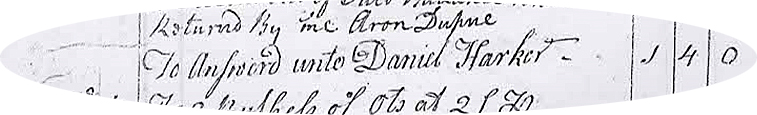 Returnd By me Aron Dupue
To Answerd unto Daniel Harker - 1 4 0
Bushels of Ots at 2/